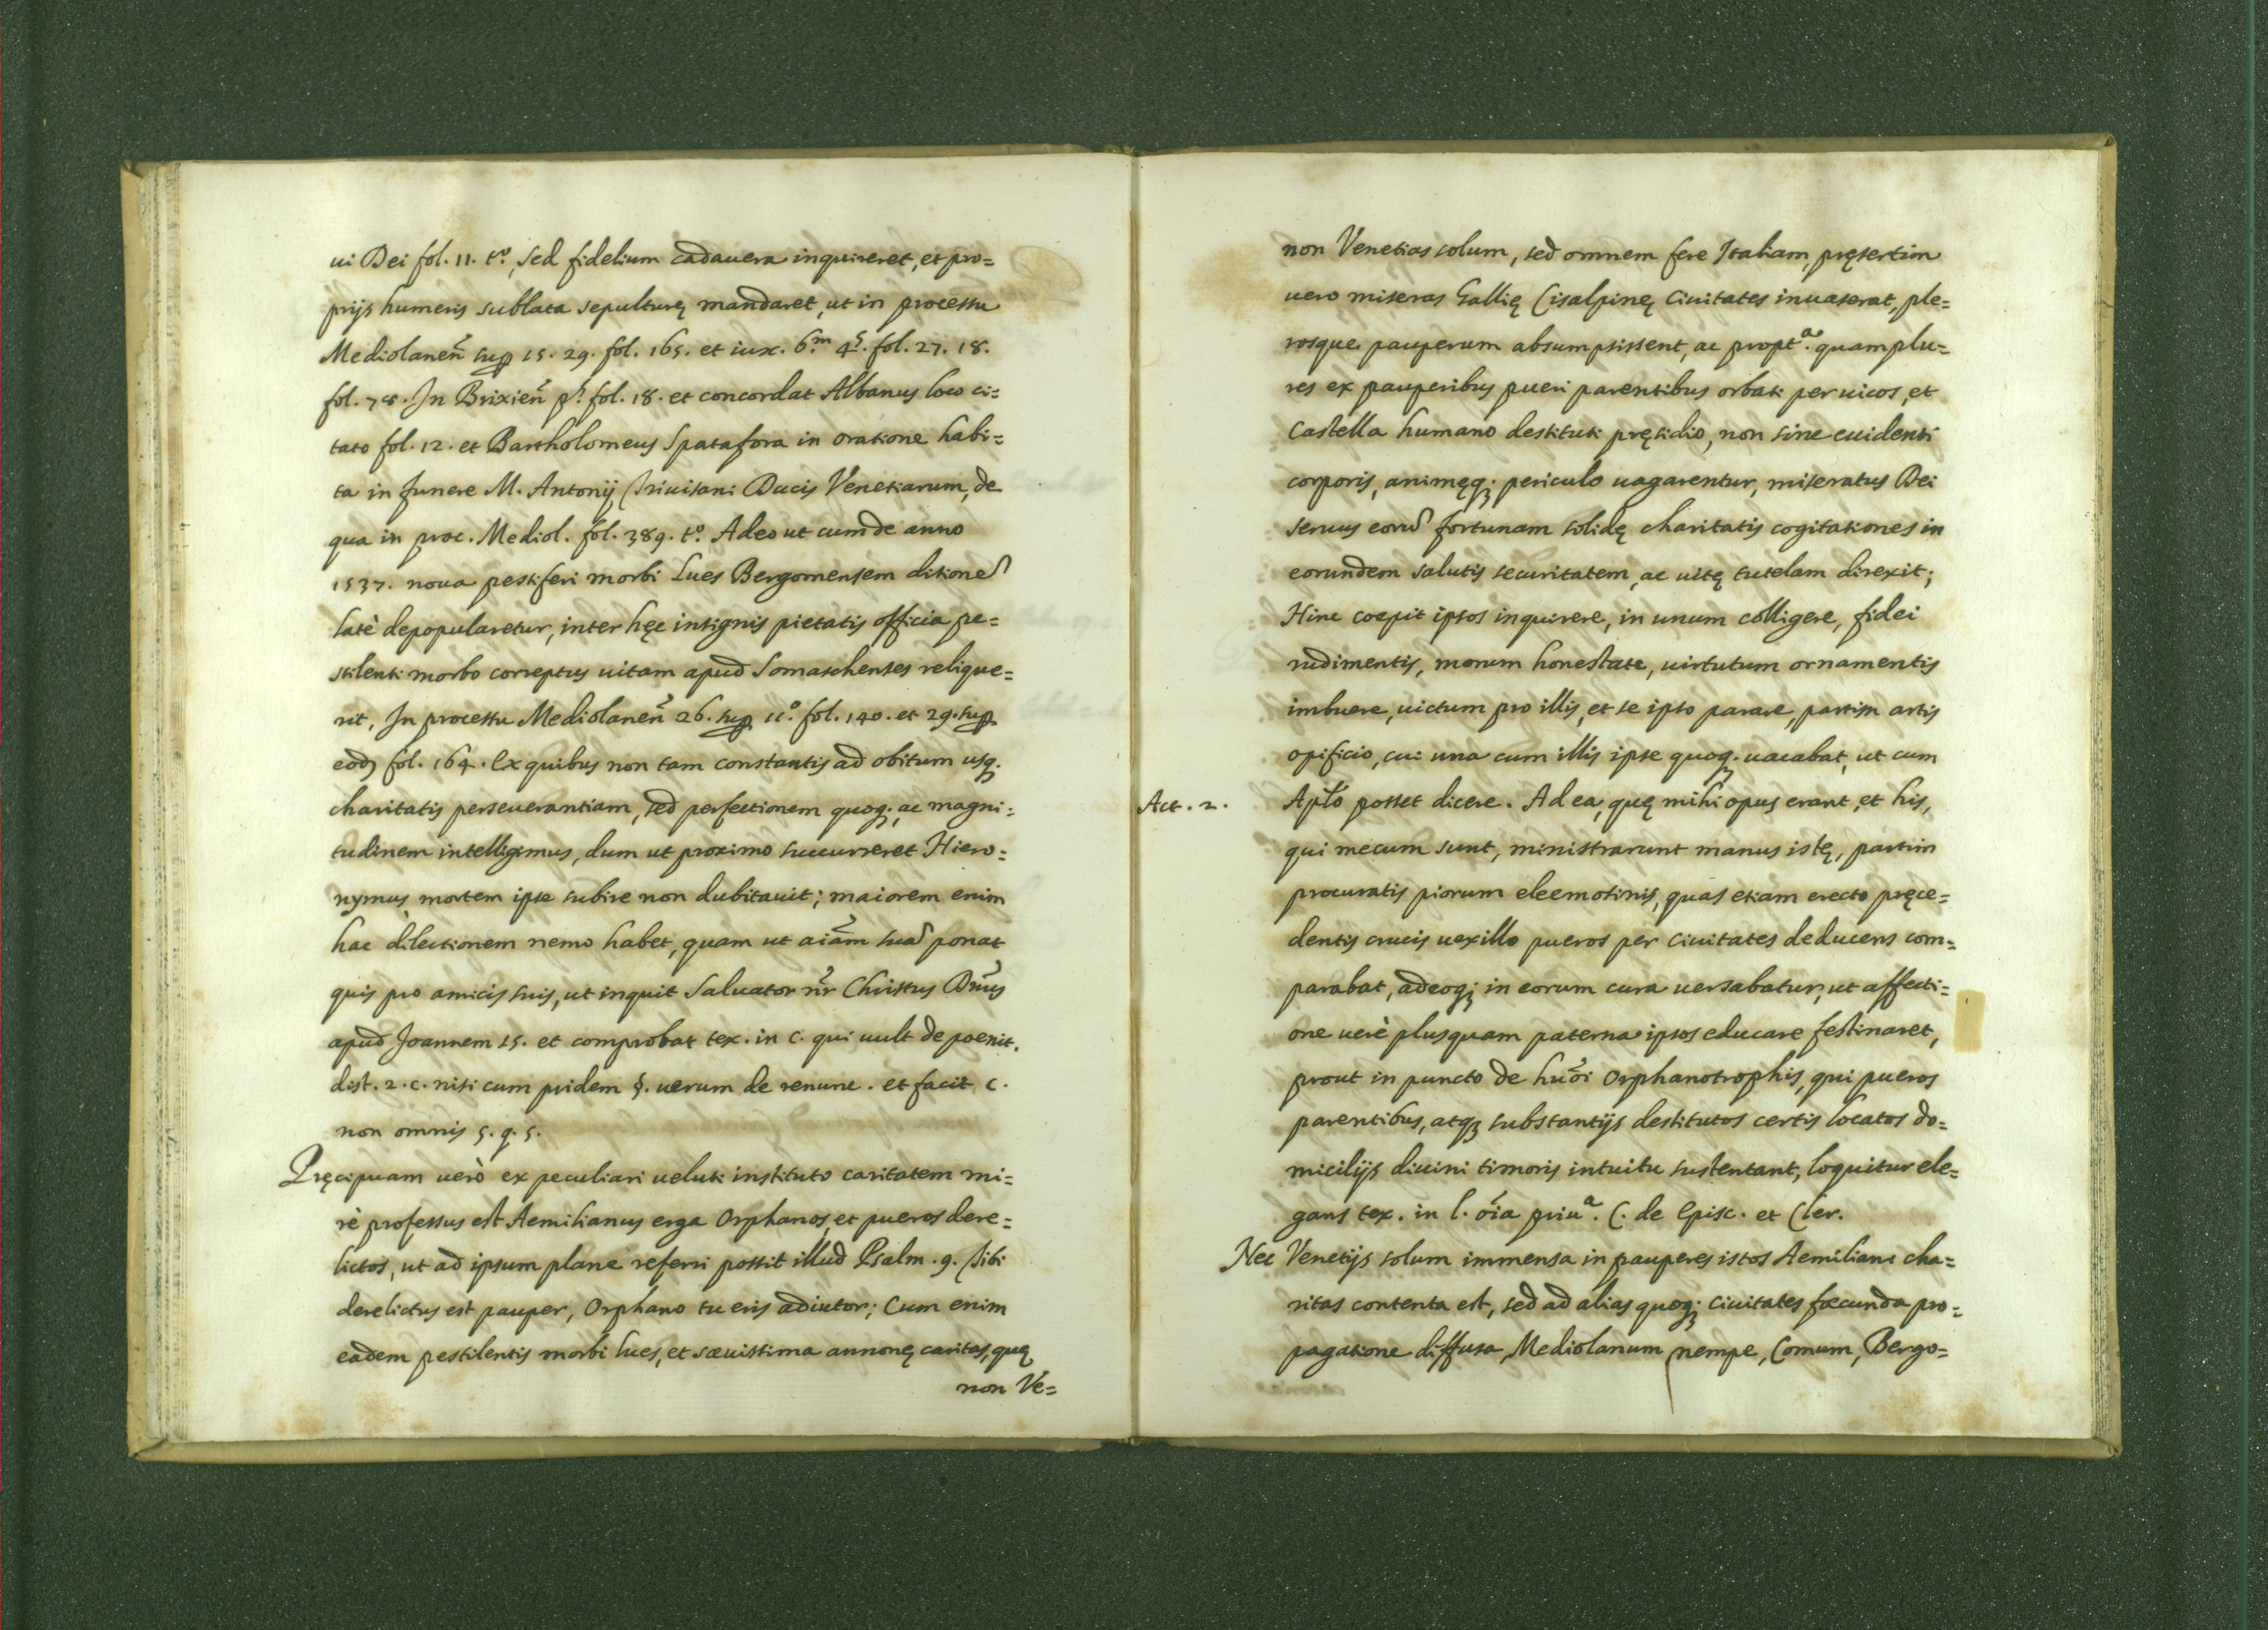 ui Dei fol. 11. t.º, sed fidelium cadauera inquireret, et pro=
prijs humeris sublata sepulturę mandaret, ut in processu
Mediolanen̄ sup 15. 29. fol. 165. et iux. 6.m 4. fol. 27. 18.
fol. 78. In Brixien̄ p.º fol. 18. et concordat Albanus loco ci=
tato fol. 12. et Bartholomeus Spatafora in oratione habi=
ta in funere M. Antonij Triuisani Ducis Venetiarum, de
qua in proc. Mediol. fol. 389. t.º Adeo ut cum de anno
1537. noua pestiferi morbi Lues Bergomensem ditionē
latè depopularetur, inter hęc insignis pietatis officia pe=
stilenti morbo correptus uitam apud Somaschenses relique=
rit, In processu Mediolanen̄ 26. sup 11.º fol. 140. et 29. sup
eod) fol. 164. Ex quibus non tam constantis ad obitum usq.
charitatis perseuerantiam, sed perfectionem quoq; ac magni=
tudinem intelligimus, dum ut proximo succurreret Hiero=
nymus mortem ipse subire non dubitauit; maiorem enim
hac dilectionem nemo habet, quam ut aiām suā ponat
quis pro amicis suis, ut inquit Saluator nr̄ Christus Dn̄us
apud Joannem 15. et comprobat tex. in c. qui uult de poenit.
dist. 2. c. nisi cum pridem §. uerum de renunc. et facit c.
non omnis 5. q. 5.
Pręcipuam uerò ex peculiari ueluti instituto caritatem mi=
rè professus est Aemilianus erga Orphanos, et pueros dere=
lictos, ut ad ipsum plane referri possit illud Psalm. 9. Tibi
derelictus est pauper, Orphano tu eris adiutor; Cum enim
eadem pestilentis morbi lues, et sæuissima annonę caritas, quę
non Ve=
non Venetias solum, sed omnem fere Italiam, pręsertim
uero miseras Gallię Cisalpinę Ciuitates inuaserat, ple=
rosque pauperum absumpsissent, ac propt.a quamplu=
res ex pauperibus pueri parentibus orbati per uicos, et
Castella humano destituti pręsidio, non sine euidenti
corporis, animęq; periculo uagarentur, miseratus Dei
seruus eorū fortunam solidę charitatis cogitationes in
eorundem salutis securitatem, ac uitę tutelam direxit;
Hinc coepit ipsos inquirere, in unum colligere, fidei
rudimentis, morum honestate, uirtutum ornamentis
imbuere, uictum pro illis, et se ipso parare, partim artis
opificio, cui una cum illis ipse quoq. uacabat, ut cum
Act. 2. Apl̄o posset dicere. Ad ea, quę mihi opus erant, et his,
qui mecum sunt, ministrarunt manus istę, partim
procuratis piorum eleemosinis, quas etiam erecto pręce=
dentis crucis uexillo pueros per Ciuitates deducens com=
parabat, adeoq; in eorum cura uersabatur, ut affecti=
one uerè plusquam paterna ipsos educare festinaret,
prout in puncto de hu̅oi Orphanotrophis, qui pueros
parentibus, atq; substantijs destitutos certis locatos do=
micilijs diuini timoris intuitu sustentant, loquitur ele=
gans tex. in l. oīa priu.a C. de Episc. et Cler.
Nec Venetijs solum immensa in pauperes istos Aemiliani cha=
ritas contenta est, sed ad alias quoq; Ciuitates fœcunda pro=
pagatione diffusa, Mediolanum nempe, Comum, Bergo=